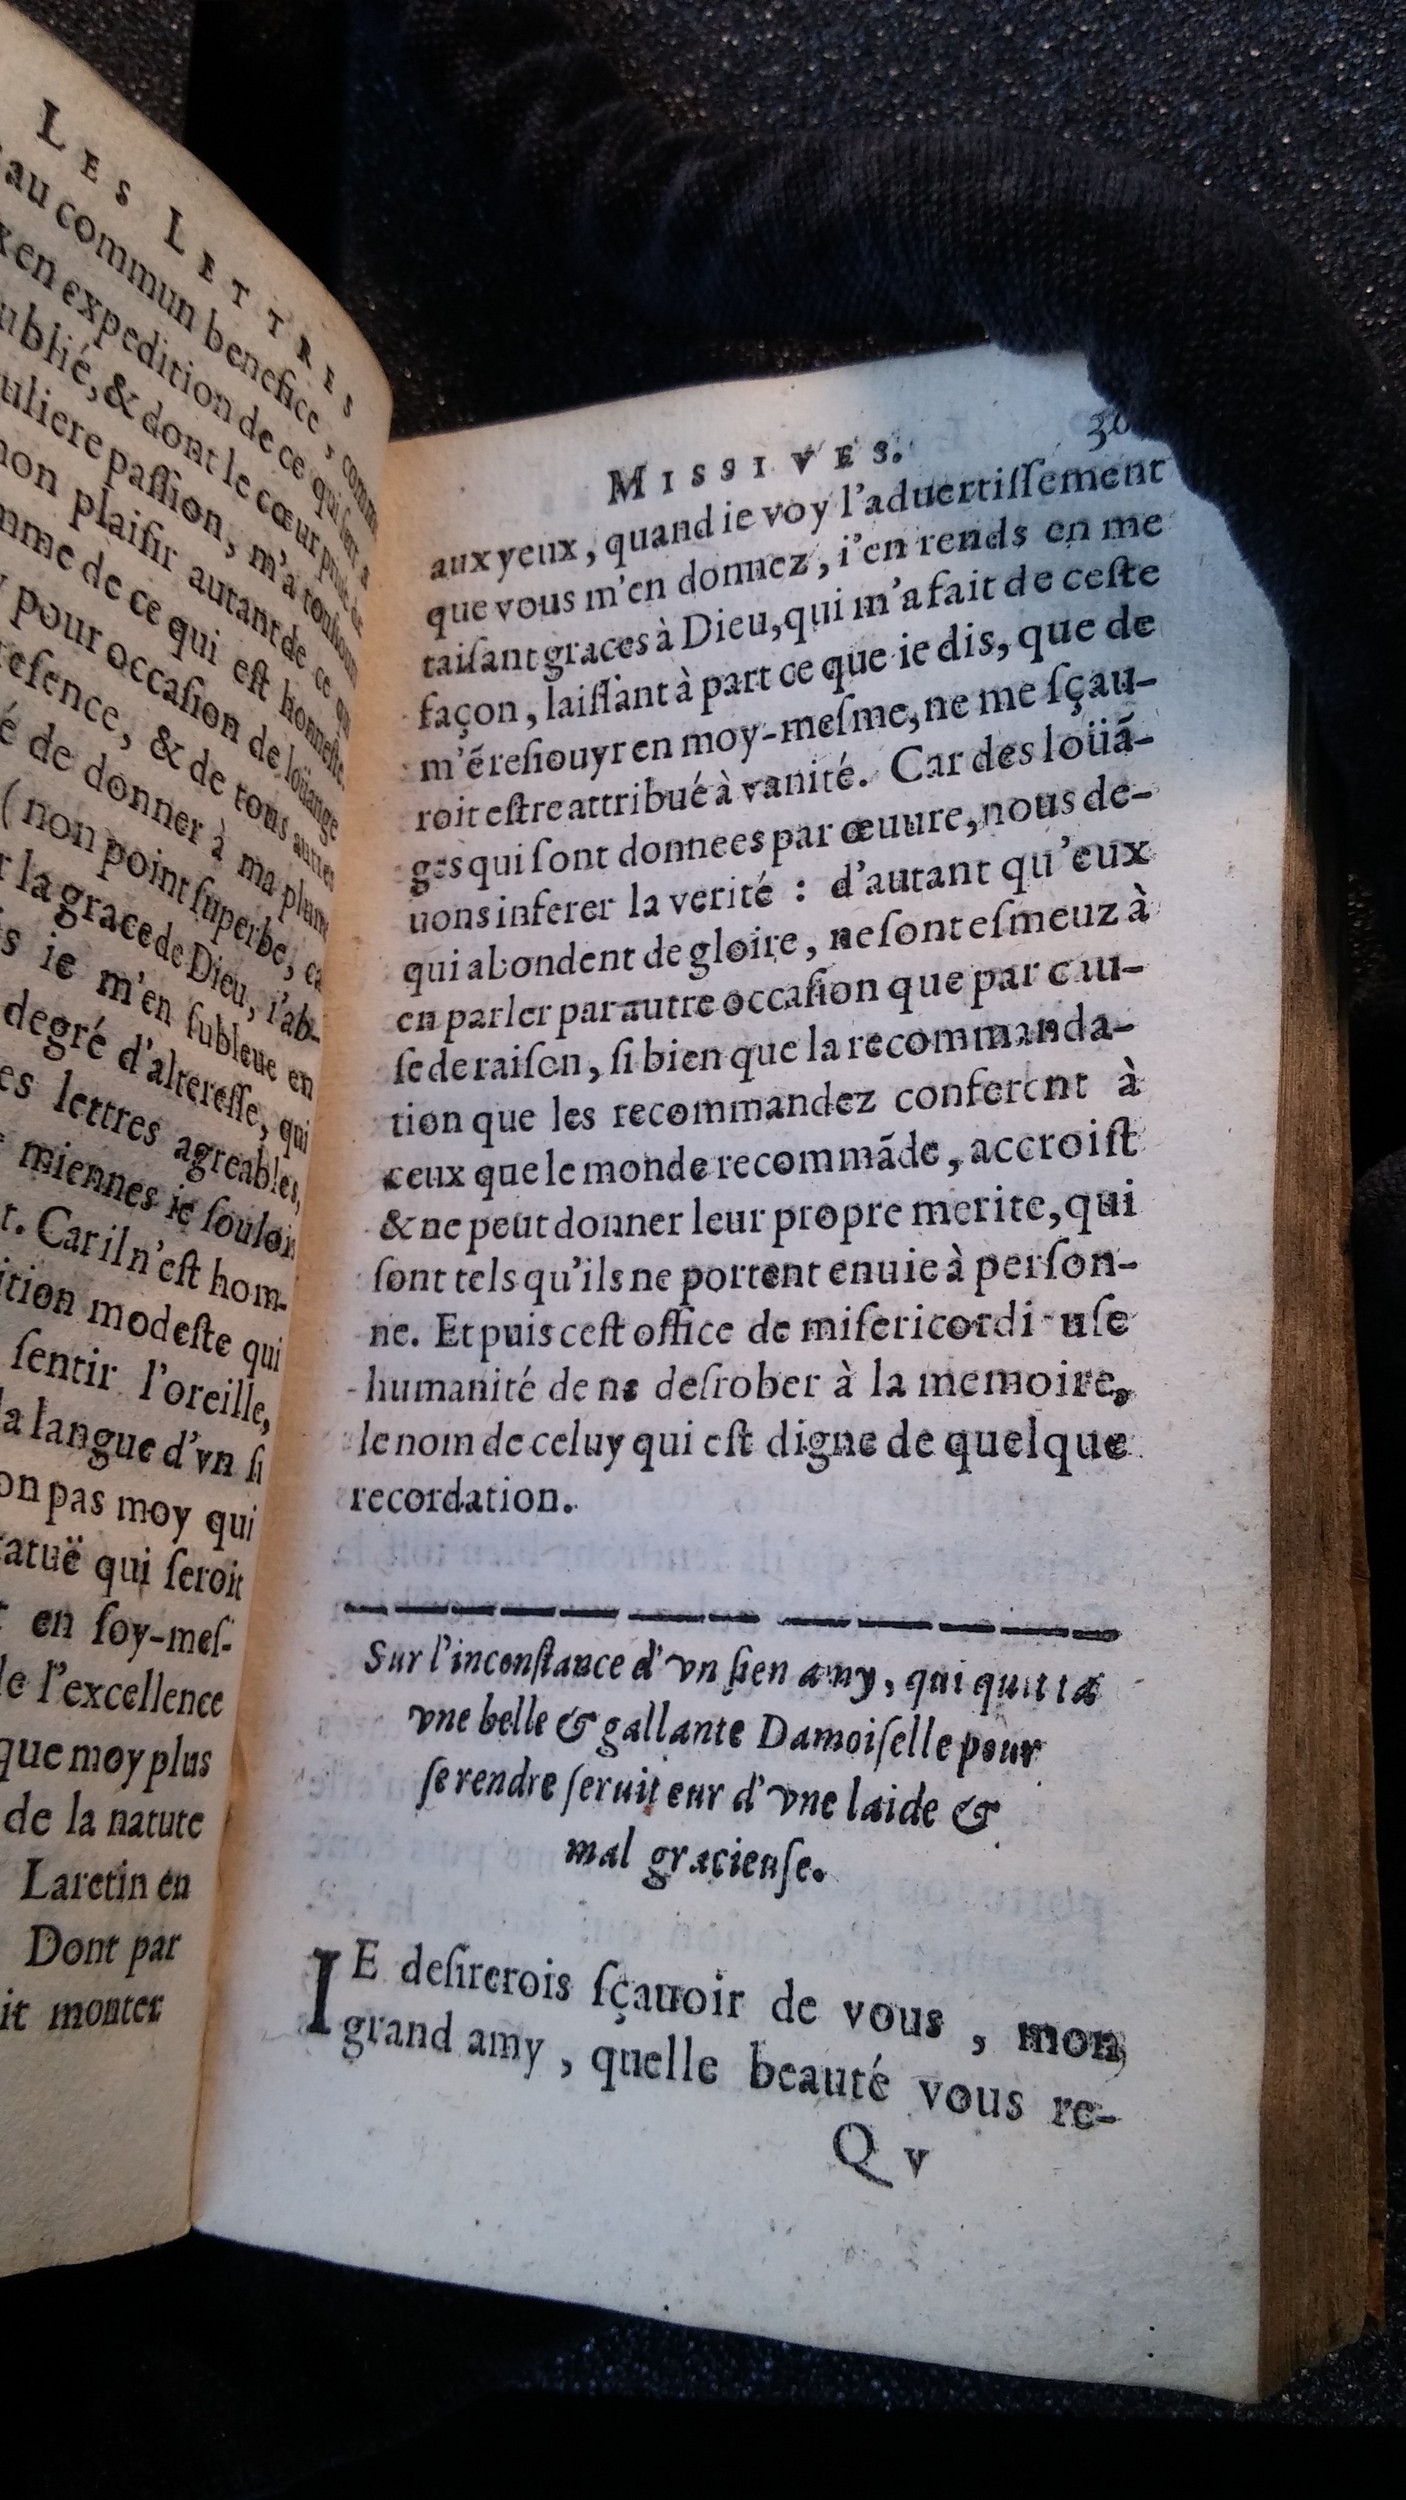 LES LETTRES
au commun benefice, comme
en expedition de ce qui sert a
ublié, & dont le cœur
uliere paſſion, m'a touſiours
non plaiſir autant de ce qui
mme de ce qui eſt honneſte
pour occaſion de loüange
eſence, & de tous autres
é de donner à ma plume
(non point ſuperbe, ca
r la grace de Dieu, i'ab-
s ie m'en ſubleue en
degré d'altereſſe, qui
es lettres agreables,
miennes ie ſouloi
t. Car il n'eſt hom-
ition modeſte qui
ſentir l'oreille,
la langue d'vn ſi
on pas moy qui
atuë qui ſeroit
en ſoy-meſ-
le l'excellence
que moy plus
de la natute
Laretin en
Dont par
it monter
MISSIVES. 30
aux yeux, quand ie voy l'aduertiſſement
que vous m'en donnez, i'en rends en me
taiſant graces à Dieu, qui m'a fait de ceſte
façon, laiſſant à part ce que ie dis, que de
m'ẽ reſiouyr en moy-meſme, ne me ſçau-
roit eſtre attribué à vanité. Car des loüã-
ges qui ſont donnees par œuure, nous de-
uons inferer la verité : d'autant qu'eux
qui abondent de gloire, ne ſont eſmeuz à
en parler par autre occaſion que par cau-
ſe de raiſon, ſi bien que la recommanda-
tion que les recommandez conferent à
ceux que le monde recommãde, accroiſt
& ne peut donner leur propre merite, qui
ſont tels qu'ils ne portent enuie à perſon-
ne. Et puis ceſt office de miſericordi uſe
humanité de ne deſrober à la memoire,
le nom de celuy qui eſt digne de quelque
recordation.
Sur l'inconſtance d'vn ſien amy, qui quitta
vne belle & gallante Damoiſelle pour
ſe rendre ſeruiteur d'vne laide &
mal gracieuſe.
IE deſirerois ſçauoir de vous, mon
grand amy, quelle beauté vous re-
Q v